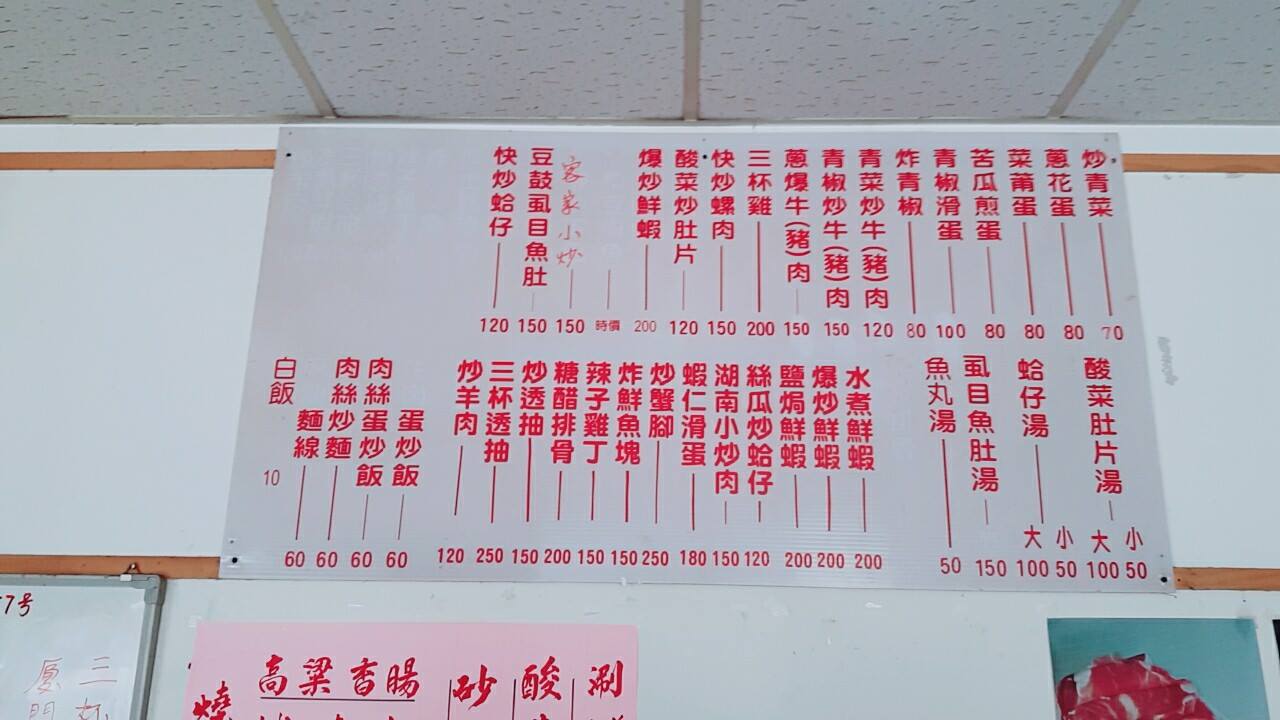 炒青菜 70
蔥花蛋 80
菜莆蛋 80
苦瓜煎蛋 80
青椒滑蛋 100
炸青椒 80
青菜炒牛(豬)肉 120
青椒炒牛(豬)肉 150
蔥爆牛(豬)肉 150
三杯雞 200
快炒螺肉 150
酸菜炒肚片 120
爆炒鮮蝦 200
時價
家家小炒 150
豆鼓虱目魚肚 150
快炒蛤仔 120
酸菜肚片湯 小 50 大 100
蛤仔湯 小 50 大 100
虱目魚肚湯 150
魚丸湯 50
水煮鮮蝦 200
爆炒鮮蝦 200
鹽焗鮮蝦 200
絲瓜炒蛤仔 120
湖南小炒肉 150
蝦仁滑蛋 180
炒蟹腳 250
炸鮮魚塊 150
辣子雞丁 150
糖醋排骨 200
炒透抽 150
三杯透抽 250
炒羊肉 120
蛋炒飯 60
肉絲蛋炒飯 60
肉絲炒麵 60
麵線 60
白飯 10
7号
三杯
廈門
涮
酸
砂
高粱香腸
燒